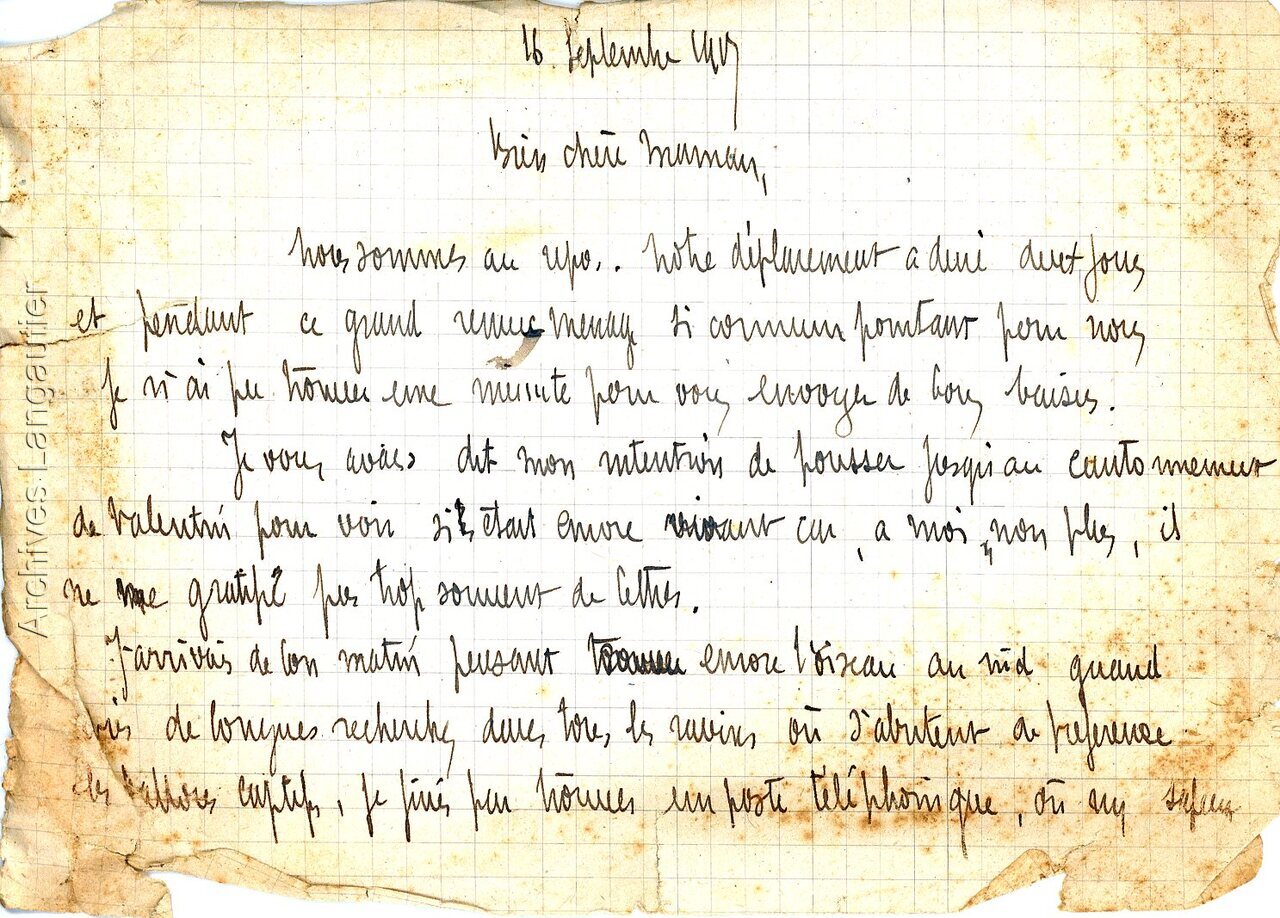 16 Septembre 1917
Bien chère Maman,
Nous sommes au repos. Notre déplacement a duré deux jours
et pendant ce grand remue menage si commun pourtant pour nous
Je n'ai pu trouver une minute pour vous envoyer de bons baisers.
Je vous avais dit mon intention de pousser jusqu'au cantonnement
de Valentin pour voir s'il était encore vivant car, a moi non plus, il
ne me gratifie pas trop souvent de lettres.
J'arrivais de bon matin pensant trouver encore l'oiseau au nid quand
de longues recherches dans tous les ravins où s'abritent de preference
les ballons captifs, je finis par trouver un poste téléphonique, où un sapeur
Archives Langautier